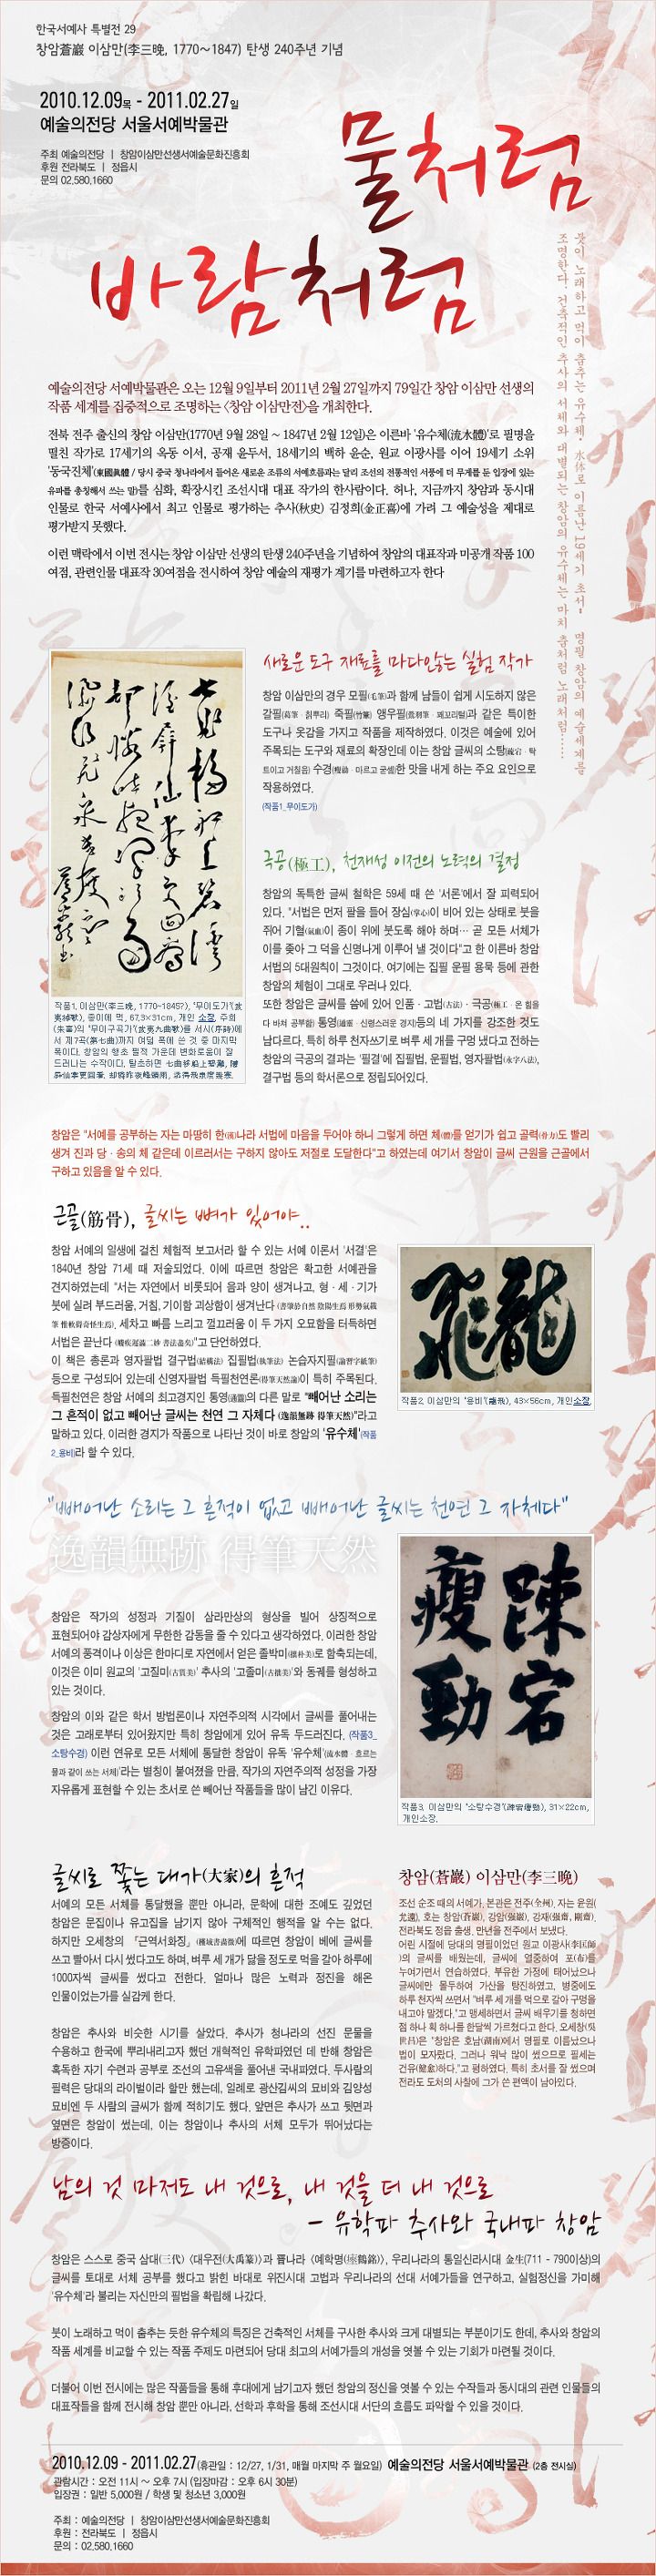 한국서예사 특별전 29
창암蒼巖 이삼만(李三晩, 1770~1847) 탄생 240주년 기념
2010.12.09목 - 2011.02.27일
예술의전당 서울서예박물관
주최 예술의전당 | 창암이삼만선생서예술문화진흥회
후원 전라북도 | 정읍시
문의 02.580.1660
물처럼
바람처럼
붓이 노래하고 먹이 춤추는 유수체·水体로 이름난 19세기 초서·명필 창암의 예술세계를
조명한다. 건축적인 추사의 서체와 대별되는 창암의 유수체는 마치 춤처럼 노래처럼......
예술의전당 서예박물관은 오는 12월 9일부터 2011년 2월 27일까지 79일간 창암 이삼만 선생의
작품 세계를 집중적으로 조명하는 <창암 이삼만전>을 개최한다.
전북 전주 출신의 창암 이삼만(1770년 9월 28일 ~ 1847년 2월 12일)은 이른바 '유수체(流水體)'로 필명을
떨친 작가로 17세기의 옥동 이서, 공재 윤두서, 18세기의 백하 윤순, 원교 이광사를 이어 19세기 소위
'동국진체'(東國眞體 / 당시 중국 청나라에서 들어온 새로운 조류의 서예흐름과는 달리 조선의 전통적인 서풍에 더 무게를 둔 입장에 있는
유파를 총칭해서 쓰는 말)를 심화, 확장시킨 조선시대 대표 작가의 한사람이다. 허나, 지금까지 창암과 동시대
인물로 한국 서예사에서 최고 인물로 평가하는 추사(秋史) 김정희(金正喜)에 가려 그 예술성을 제대로
평가받지 못했다.
이런 맥락에서 이번 전시는 창암 이삼만 선생의 탄생 240주년을 기념하여 창암의 대표작과 미공개 작품 100
여점, 관련인물 대표작 30여점을 전시하여 창암 예술의 재평가 계기를 마련하고자 한다
새로운 도구 재료를 마다않는 실험 작가
창암 이삼만의 경우 모필(毛筆)과 함께 남들이 쉽게 시도하지 않은
갈필(葛筆 · 칡뿌리) 죽필(竹筆) 앵우필(鶯羽筆 · 꾀꼬리털)과 같은 특이한
도구나 옷감을 가지고 작품을 제작하였다. 이것은 예술에 있어
주목되는 도구와 재료의 확장인데 이는 창암 글씨의 소탕(疏宕 · 탁
트이고 거칠음) 수경(瘦勁 · 마르고 굳셈)한 맛을 내게 하는 주요 요인으로
작용하였다.
(작품1_무이도가)
극공(極工), 천재성 이전의 노력의 결정
창암의 독특한 글씨 철학은 59세 때 쓴 '서론'에서 잘 피력되어
있다. "서법은 먼저 팔을 들어 장심(掌心)이 비어 있는 상태로 붓을
쥐어 기혈(氣血)이 종이 위에 붓도록 해야 하며… 곧 모든 서체가
이를 좇아 그 덕을 신명나게 이루어 낼 것이다"고 한 이른바 창암
서법의 5대원칙이 그것이다. 여기에는 집필 운필 용묵 등에 관한
창암의 체험이 그대로 우러나 있다.
또한 창암은 글씨를 씀에 있어 인품 · 고법(古法) · 극공(極工 · 온 힘을
다 바쳐 공부함) 통영(通靈 · 신령스러운 경지)등의 네 가지를 강조한 것도
남다르다. 특히 하루 천자쓰기로 벼루 세 개를 구멍 냈다고 전하는
창암의 극공의 결과는 '필결'에 집필법, 운필법, 영자팔법(永字八法),
결구법 등의 학서론으로 정립되어있다.
작품1. 이삼만(李三晩, 1770~1845?), '무이도가'(武
夷棹歌), 종이에 먹, 67.3×31cm, 개인 소장. 주희
(朱熹)의 '무이구곡가'(武夷九曲歌)를 서시(序詩)에
서 제7곡(第七曲)까지 여덟 폭에 쓴 것 중 마지막
폭이다. 창암의 행초 필적 가운데 변화로움이 잘
드러나는 수작이다. 탈초하면 七曲移船上碧灘, 隱
屛仙掌更回看. 却憐昨夜峰頭雨, 添得飛泉度幾寒.
창암은 "서예를 공부하는 자는 마땅히 한(漢)나라 서법에 마음을 두어야 하니 그렇게 하면 체(體)를 얻기가 쉽고 골력(骨力)도 빨리
생겨 진과 당 · 송의 체 같은데 이르러서는 구하지 않아도 저절로 도달한다"고 하였는데 여기서 창암이 글씨 근원을 근골에서
구하고 있음을 알 수 있다.
근골(筋骨), 글씨는 뼈가 있어야..
창암 서예의 일생에 걸친 체험적 보고서라 할 수 있는 서예 이론서 '서결'은
1840년 창암 71세 때 저술되었다. 이에 따르면 창암은 확고한 서예관을
견지하였는데 "서는 자연에서 비롯되어 음과 양이 생겨나고, 형 · 세 · 기가
붓에 실려 부드러움, 거침, 기이함 괴상함이 생겨난다 (書肇於自然 陰陽生焉 形勢氣載
筆 惟軟得奇怪生焉). 세차고 빠름 느리고 껄끄러움 이 두 가지 오묘함을 터득하면
서법은 끝난다 (疾遲澁二妙 書法盡矣)"고 단언하였다.
이 책은 총론과 영자팔법 결구법(結構法) 집필법(執筆法) 논습자지필(論習字紙筆)
등으로 구성되어 있는데 신영자팔법 득필천연론(得筆天然論)이 특히 주목된다.
득필천연은 창암 서예의 최고경지인 통영(通靈)의 다른 말로 "빼어난 소리는
그 흔적이 없고 빼어난 글씨는 천연 그 자체다 (逸韻無跡 得筆天然)"라고
말하고 있다. 이러한 경지가 작품으로 나타난 것이 바로 창암의 '유수체'(작품
2_용비)라 할 수 있다.
작품2. 이삼만의 '용비'(龍飛), 43×56cm, 개인소장.
"빼어난 소리는 그 흔적이 없고 빼어난 글씨는 천연 그 자체다"
逸韻無跡 得筆天然
창암은 작가의 성정과 기질이 삼라만상의 형상을 빌어 상징적으로
표현되어야 감상자에게 무한한 감동을 줄 수 있다고 생각하였다. 이러한 창암
서예의 풍격이나 이상은 한마디로 자연에서 얻은 졸박미(拙朴美)로 함축되는데,
이것은 이미 원교의 '고질미(古質美)' 추사의 '고졸미(古拙美)'와 동궤를 형성하고
있는 것이다.
창암의 이와 같은 학서 방법론이나 자연주의적 시각에서 글씨를 풀어내는
것은 고래로부터 있어왔지만 특히 창암에게 있어 유독 두드러진다. (작품3_
소탕수경) 이런 연유로 모든 서체에 통달한 창암이 유독 '유수체'(流水體 · 흐르는
물과 같이 쓰는 서체)'라는 별칭이 붙여졌을 만큼, 작가의 자연주의적 성정을 가장
자유롭게 표현할 수 있는 초서로 쓴 빼어난 작품들을 많이 남긴 이유다.
疎宕
瘦勁
작품3. 이삼만의 '소탕수경'(疎宕瘦勁), 31×22cm,
개인소장.
글씨로 쫓는 대가(大家)의 흔적
서예의 모든 서체를 통달했을 뿐만 아니라, 문학에 대한 조예도 깊었던
창암은 문집이나 유고집을 남기지 않아 구체적인 행적을 알 수는 없다.
하지만 오세창의 「근역서화징」(槿域書畵徵)에 따르면 창암이 베에 글씨를
쓰고 빨아서 다시 썼다고도 하며, 벼루 세 개가 닳을 정도로 먹을 갈아 하루에
1000자씩 글씨를 썼다고 전한다. 얼마나 많은 노력과 정진을 해온
인물이었는가를 실감케 한다.
창암은 추사와 비슷한 시기를 살았다. 추사가 청나라의 선진 문물을
수용하고 한국에 뿌리내리고자 했던 개혁적인 유학파였던 데 반해 창암은
혹독한 자기 수련과 공부로 조선의 고유색을 풀어낸 국내파였다. 두사람의
필력은 당대의 라이벌이라 할만 했는데, 일례로 광산김씨의 묘비와 김양성
묘비엔 두 사람의 글씨가 함께 적히기도 했다. 앞면은 추사가 쓰고 뒷면과
옆면은 창암이 썼는데, 이는 창암이나 추사의 서체 모두가 뛰어났다는
방증이다.
창암(蒼巖) 이삼만(李三晩)
조선 순조 때의 서예가. 본관은 전주(全州). 자는 윤원(
允遠), 호는 창암(蒼巖), 강암(强巖), 강재(强齋, 剛齋).
전라북도 정읍 출생. 만년을 전주에서 보냈다.
어린 시절에 당대의 명필이었던 원교 이광사(李匡師
)의 글씨를 배웠는데, 글씨에 열중하여 포(布)를
누여가면서 연습하였다. 부유한 가정에 태어났으나
글씨에만 몰두하여 가산을 탕진하였고, 병중에도
하루 천자씩 쓰면서 "벼루 세 개를 먹으로 갈아 구멍을
내고야 말겠다."고 맹세하면서 글씨 배우기를 청하면
점 하나 획 하나를 한달씩 가르쳤다고 한다. 오세창(吳
世昌)은 "창암은 호남(湖南)에서 명필로 이름났으나
법이 모자랐다. 그러나 워낙 많이 썼으므로 필세는
건유(健兪)하다."고 평하였다. 특히 초서를 잘 썼으며
전라도 도처의 사찰에 그가 쓴 편액이 남아있다.
남의 것 마저도 내 것으로, 내 것을 더 내 것으로
- 유학파 추사와 국내파 창암
창암은 스스로 중국 삼대(三代) <대우전(大禹篆)>과 晉나라 <예학명(瘞鶴銘)>, 우리나라의 통일신라시대 金生(711 - 790이상)의
글씨를 토대로 서체 공부를 했다고 밝힌 바대로 위진시대 고법과 우리나라의 선대 서예가들을 연구하고, 실험정신을 가미해
'유수체'라 불리는 자신만의 필법을 확립해 나갔다.
붓이 노래하고 먹이 춤추는 듯한 유수체의 특징은 건축적인 서체를 구사한 추사와 크게 대별되는 부분이기도 한데, 추사와 창암의
작품 세계를 비교할 수 있는 작품 주제도 마련되어 당대 최고의 서예가들의 개성을 엿볼 수 있는 기회가 마련될 것이다.
더불어 이번 전시에는 많은 작품들을 통해 후대에게 남기고자 했던 창암의 정신을 엿볼 수 있는 수작들과 동시대의 관련 인물들의
대표작들을 함께 전시해 창암 뿐만 아니라, 선학과 후학을 통해 조선시대 서단의 흐름도 파악할 수 있을 것이다.
2010.12.09 - 2011.02.27(휴관일 : 12/27, 1/31, 매월 마지막 주 월요일) 예술의전당 서울서예박물관 (2층 전시실)
관람시간 : 오전 11시 ~ 오후 7시 (입장마감 : 오후 6시 30분)
입장권 : 일반 5,000원 / 학생 및 청소년 3,000원
주최 : 예술의전당 | 창암이삼만선생서예술문화진흥회
후원 : 전라북도 | 정읍시
문의 : 02.580.1660